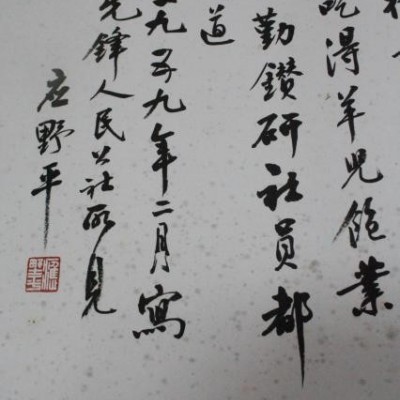 吃得羊児飽業
勤鑽研社員都
道
九五九年二月寫
先鋒人民公社所見
应野平